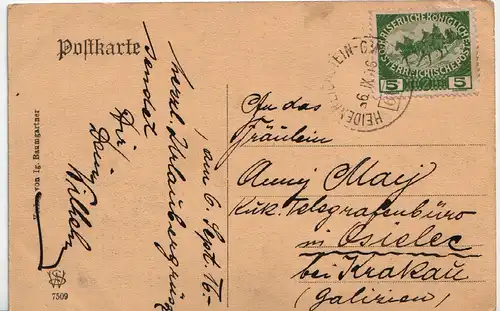 Postkarte
KAISERLICHE KÖNIGLICHE
ÖSTERREICHISCHE POST
5 5
HEIDENREICHSTEIN
6.IX.16
von Ig. Baumgartner
7509
, am 6. Sept. 16.-
Herzl. Urlaubergrüsse
sendet
Dir
Dein
Wilhelm
An das
Fräulein
Anny Maij
K.u.k. Telegrafenbüro
in Osielec
bei Krakau
(Galizien)